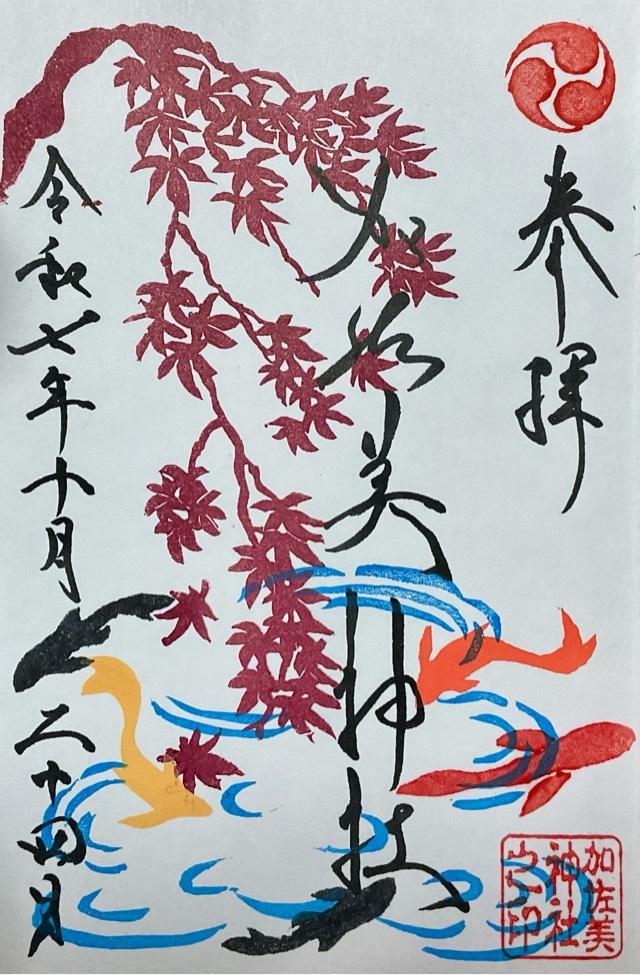 奉拝
加佐美神社
令和七年十月二十四日
加佐美
神社
之印